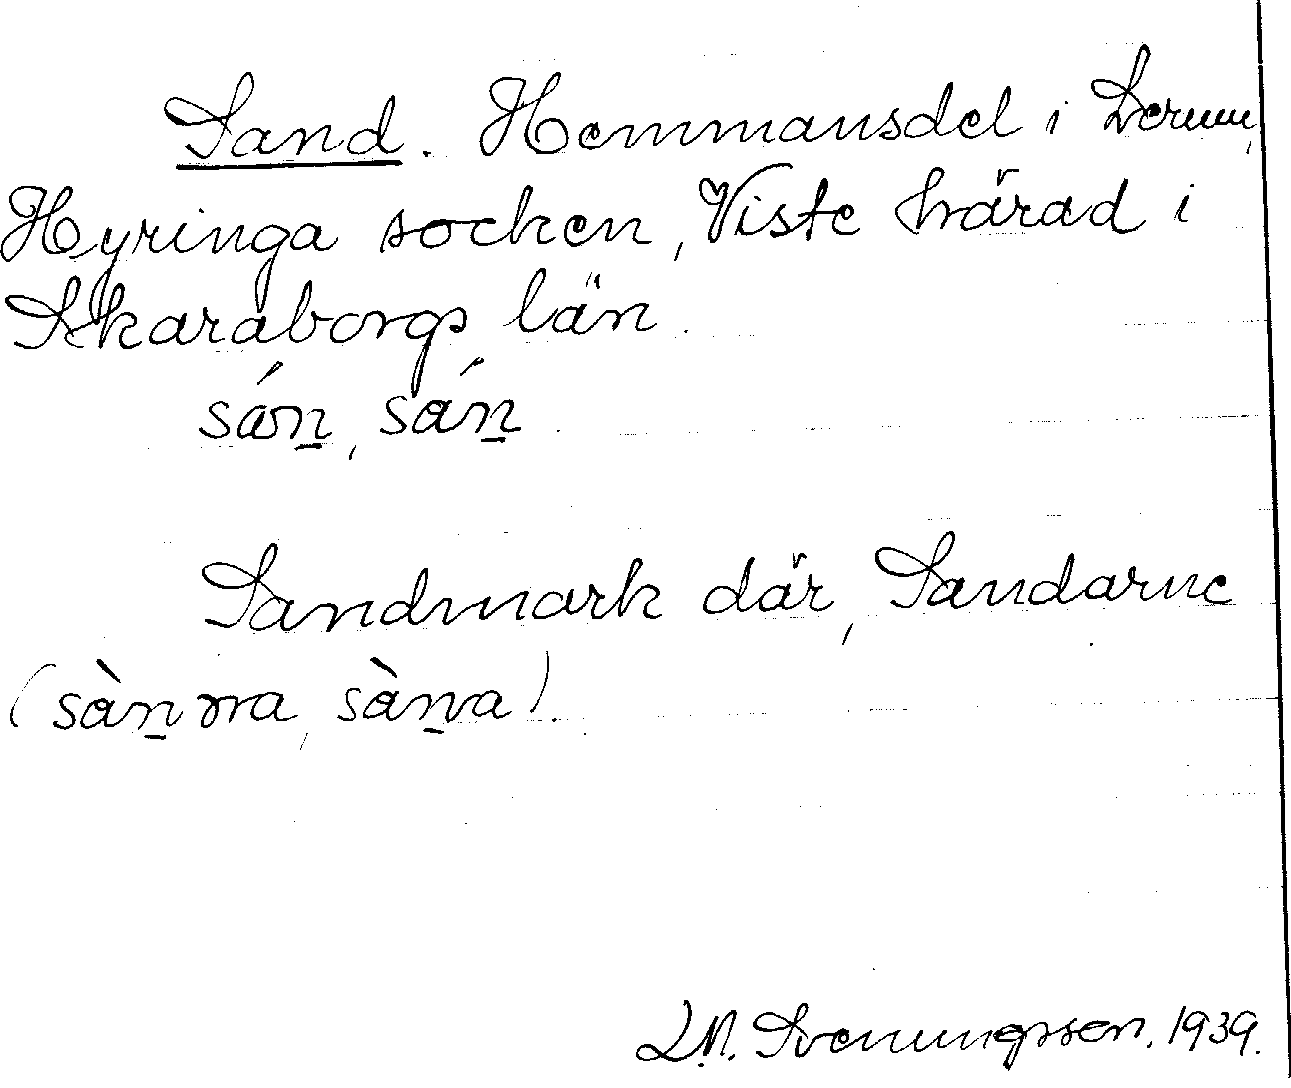 Sand. Hemmansdel i Lerum,
Hyringa socken, Viste härad i
Skaraborgs län.
sán̠, sán̠.
Sandmark där, Sandarne
(sàn̠ɑ, sàn̠a).
L.M. Svenungsson. 1939.